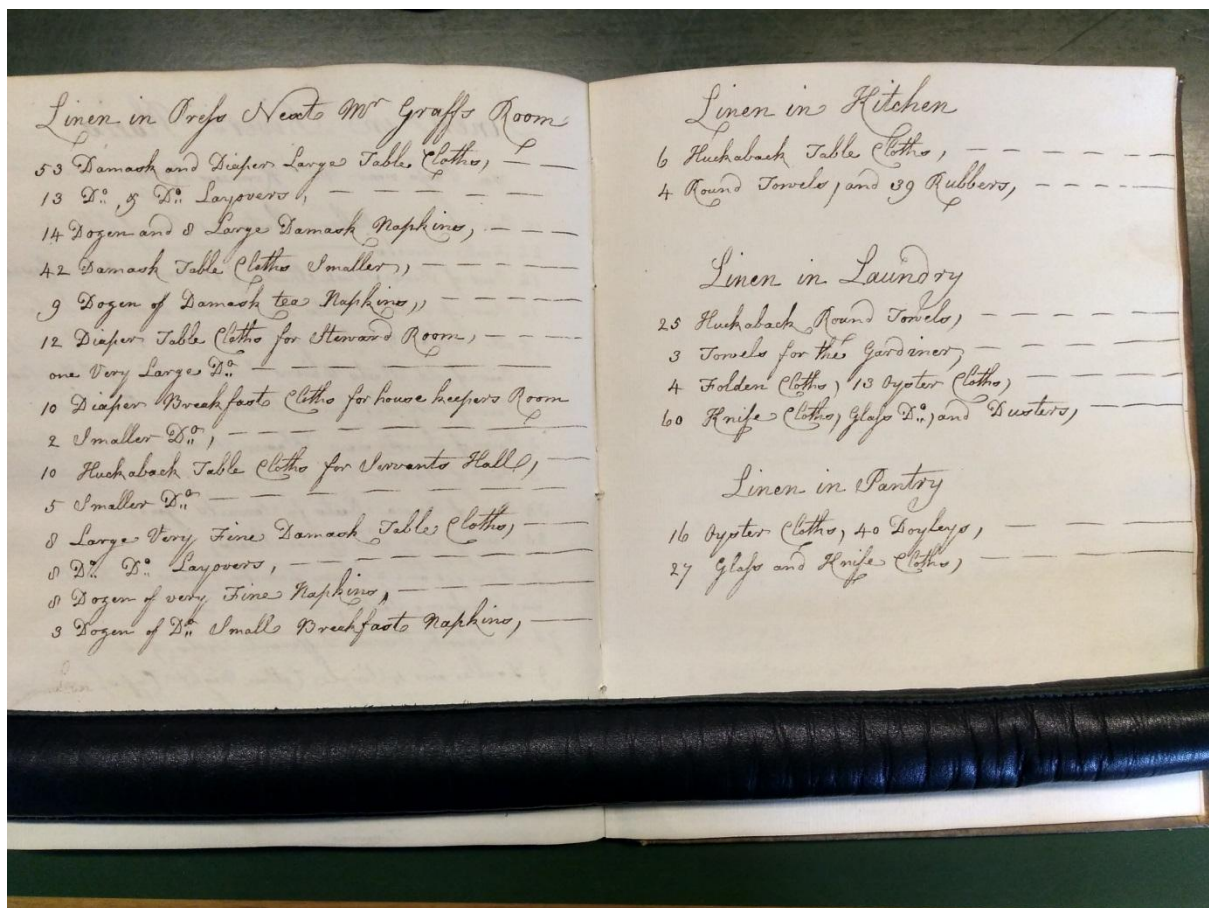 Linen in Press Next Mr Graffs Room
53 Damask and Diaper Large Table Cloths, — —
13 Do. & Do. Layovers, — — — — —
14 Dozen and 8 Large Damask Napkins, — — —
42 Damask Table Cloths Smaller, — — — —
9 Dozen of Damask tea Napkins, — — — —
12 Diaper Table Cloths for Steward Room, — — —
one Very Large Do. — — — — — — —
10 Diaper Breekfast Cloths for house keepers Room
2 Smaller Do., — — — — — — — —
10 Huckaback Table Cloths for Servants Hall, —
5 Smaller Do. — — — — — — — —
8 Large Very Fine Damask Table Cloths, — —
8 Do. Do. Layovers, — — — — — — —
8 Dozen of very Fine Napkins, — — — —
3 Dozen of Do. Small Breekfast Napkins, —
Linen in Kitchen
6 Huckaback Table Cloths, — — — — — —
4 Round Towels, and 39 Rubbers, — — — —
Linen in Laundry
25 Huckaback Round Towels, — — — — —
3 Towels for the Gardiner, — — — — —
4 Folden Cloths, 13 Oyster Cloths, — — —
60 Knife Cloths, Glass Do., and Dusters, — —
Linen in Pantry
16 Oyster Cloths, 40 Doyleys, — —
27 Glass and Knife Cloths, — — — —